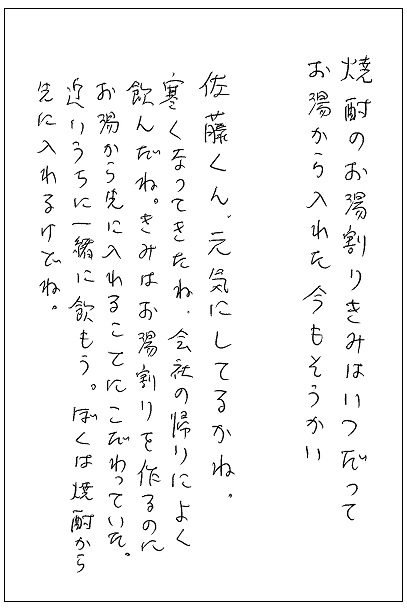 焼酎のお湯割りきみはいつだって
お湯から入れた今もそうかい
佐藤くん、元気にしてるかね。
寒くなってきたね、会社の帰りによく
飲んだね。きみはお湯割りを作るのに
お湯から先に入れることにこだわっていた。
近いうちに一緒に飲もう。ぼくは焼酎から
先に入れるけどね。